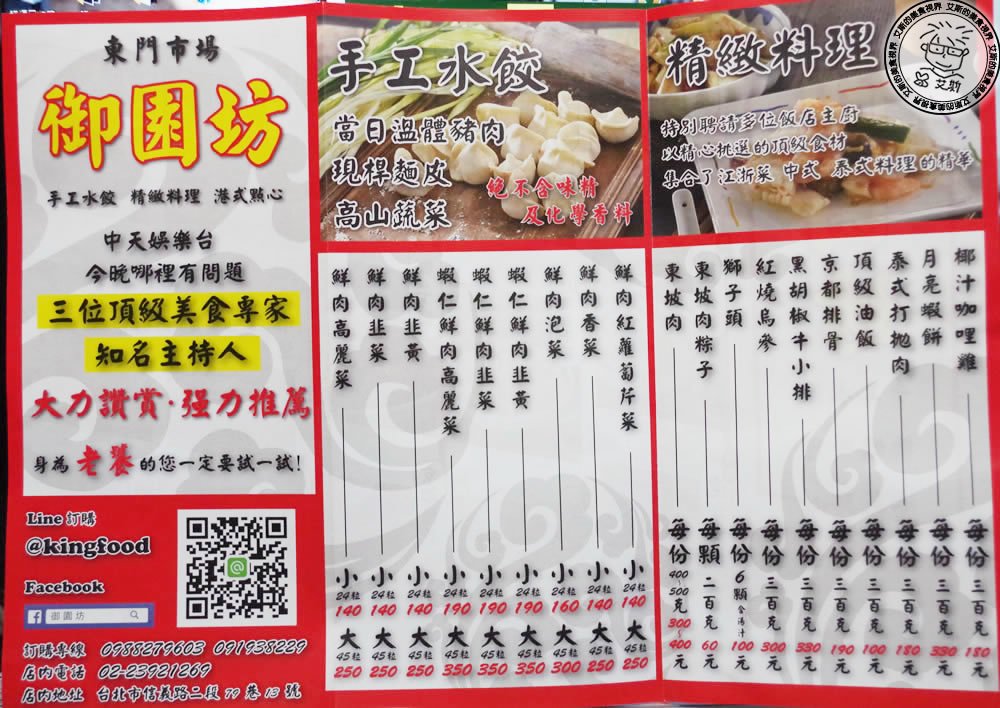 東門市場
御園坊
手工水餃 精緻料理 港式點心
中天娛樂台
今晚哪裡有問題
三位頂級美食專家
知名主持人
大力讚賞·强力推薦
身為老饕的您一定要試一試!
Line 訂購
@kingfood
Facebook
f 御園坊
訂購專線 0988279603 091938229
店內電話 02-23921269
店內地址 台北市信義路二段79巷13號
手工水餃
當日溫體豬肉
現桿麵皮
高山蔬菜
絕不含味精
及化學香料
鮮肉紅蘿蔔芹菜 小 24粒 140 大 45粒 250
鮮肉香菜 小 24粒 140 大 45粒 250
鮮肉泡菜 小 24粒 160 大 45粒 300
蝦仁鮮肉韭黃 小 24粒 190 大 45粒 350
蝦仁鮮肉韭菜 小 24粒 190 大 45粒 350
蝦仁鮮肉高麗菜 小 24粒 190 大 45粒 350
鮮肉韭黃 小 24粒 140 大 45粒 250
鮮肉韭菜 小 24粒 140 大 45粒 250
鮮肉高麗菜 小 24粒 140 大 45粒 250
精緻料理
特別聘請多位飯店主廚
以精心挑選的頂級食材
集合了江浙菜 中式 泰式料理的精華
椰汁咖哩雞 每份 三百克 180元
月亮蝦餅 每份 三百克 330元
泰式打拋肉 每份 三百克 180元
頂級油飯 每份 三百克 100元
京都排骨 每份 三百克 190元
黑胡椒牛小排 每份 三百克 330元
紅燒烏參 每份 三百克 300元
獅子頭 每份 6顆含湯汁 100元
東坡肉粽子 每顆 二百克 60元
東坡肉 每份 400~500克 300~400元
艾斯的美食視界 艾斯的美食視界 艾斯的美食視界
艾斯